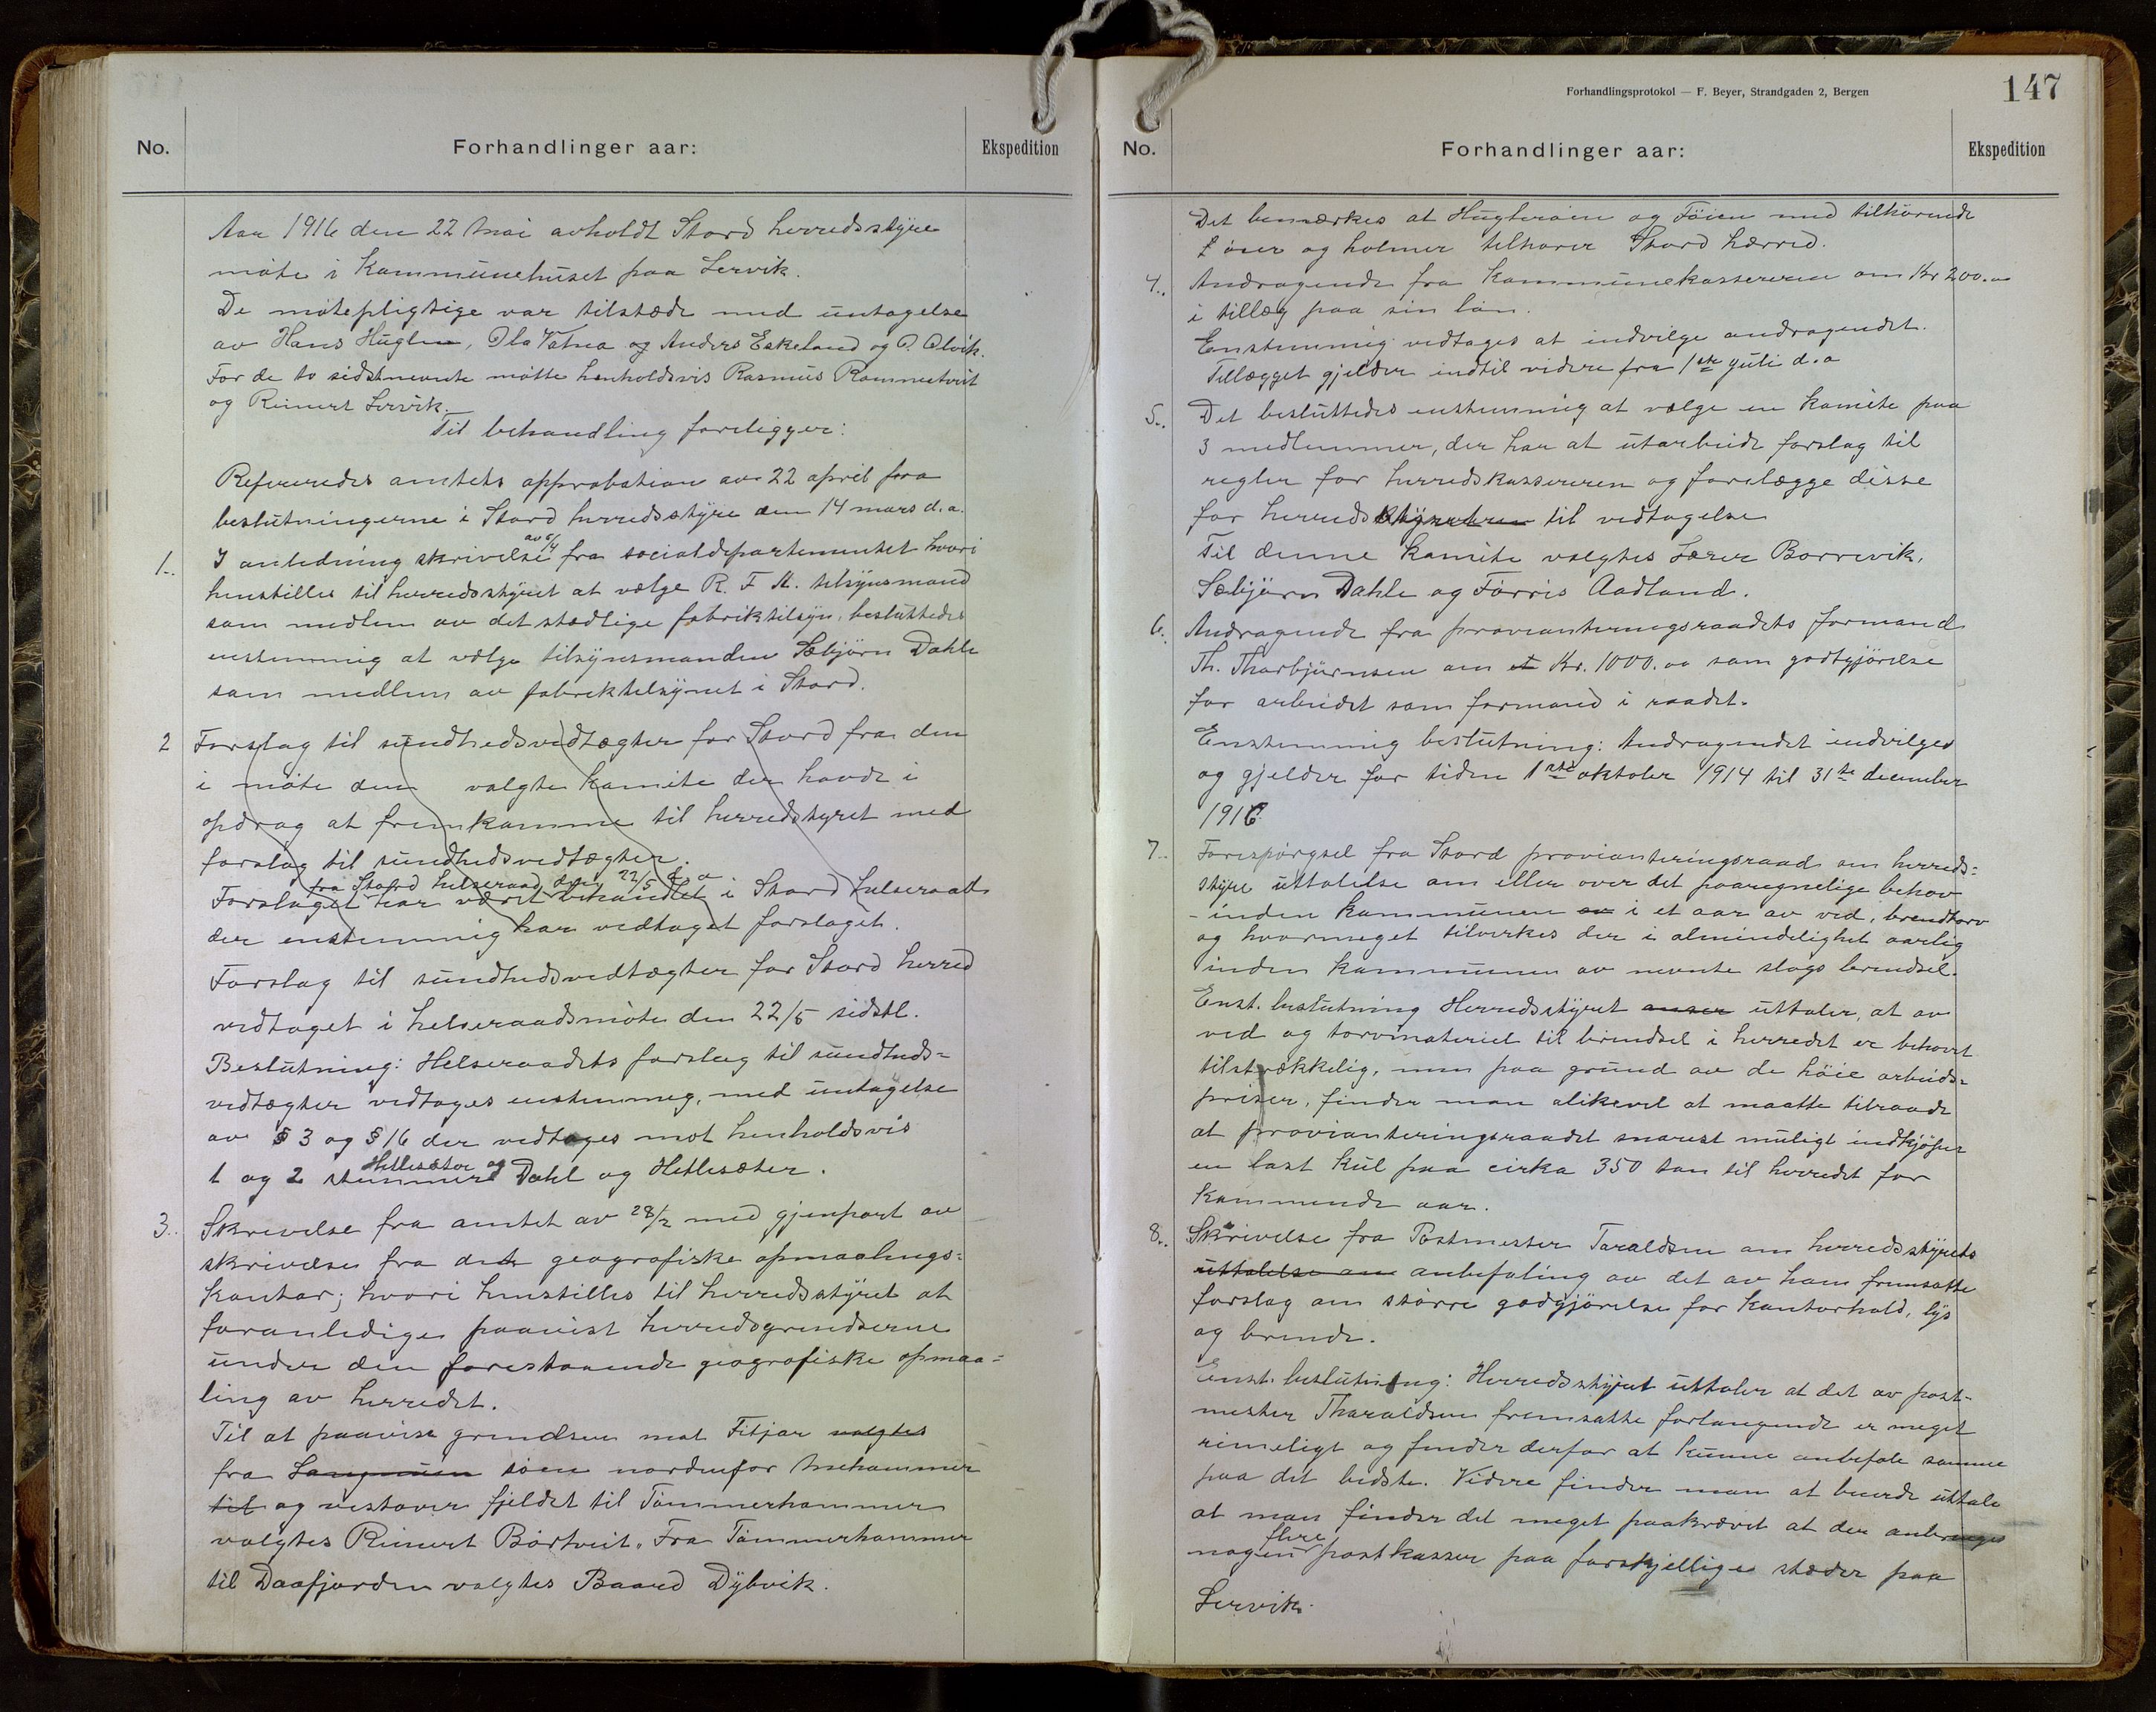 No. Forhandlinger aar: Ekspedition
Aar 1916 den 22 Mai avholdt Stord herredsstyre
møte i Kommunehuset paa Lervik.
De møtepligtige var tilstæde med untagelse
av Hans Huglen, Ola Vatna og Anders Eskeland og P. Alvik.
For de to sidstnevnte møtte henholdsvis Rasmus Rommetveit
og Reinert Lervik.
Til behandling foreligger:
Refereredes amtets approbation av 22 april fra
beslutningerne i Stord herredsstyre den 14 mars d.a.
1. I anledning skrivelse av 5/4 fra socialdepartementet hvori
henstilles til herredsstyret at vælge R. F. A. tilsynsmand
som medlem av det stedlige fabriktilsyn, besluttedes
enstemmig at vælge tilsynsmanden Sæbjørn Dahle
som medlem av fabriktilsynet i Stord.
2 Forslag til sundhedsvedtægter for Stord fra den
i møte den valgte komite der havde i
opdrag at fremkomme til herredstyret med
forslag til sundhedsvedtægter.
fra Stord helseraad den 22/5 d a
Forslaget har været behandlet i Stord helseraad
der enstemmig har vedtaget forslaget.
Forslag til sundhedsvedtægter for Stord herred
vedtaget i helseraadsmøte den 22/5 sidstl.
Beslutning: Helseraadets forslag til sundheds=
vedtægter vedtages enstemmig, med untagelse
av § 3 og § 16 der vedtages mot henholdsvis
1 og 2 stemmer Hetlesæter og Dahl og Hetlesæter.
3. Skrivelse fra amtet av 28/2 med gjenpart av
skrivelse fra den geografiske opmaalings=
kontor; hvori henstilles til herredsstyret at
foranledige paavist herredsgrendserne
under den forestaaende geografiske opmaa=
ling av herredet.
Til at paavise grendsen mot Fitjar valgtes
fra Langmuen søen nordenfor Mehammer
til og vestover fjeldet til Tømmerhammer
valgtes Reinert Børtveit. Fra Tømmerhammer
til Daafjorden valgtes Baard Dybvik.
Forhandlingsprotokol — F. Beyer, Strandgaden 2, Bergen
147
No. Forhandlinger aar: Ekspedition
Det bemærkes at Hugleröen og Föien med tilhörende
öer og holmer tilhører Stord hærred.
4. Andragende fra Kommunekassereren om Kr 200.00
i tillæg paa sin løn.
Enstemmig vedtages at indvilge andragendet.
Tillægget gjelder indtil videre fra 1ste juli d.a
5. Det besluttedes enstemmig at vælge en komite paa
3 medlemmer, der har at utarbeide forslag til
regler for herredskassereren og forelægge disse
for herredsstyret til vedtagelse
Til denne komite valgtes Lærer Borrevik,
Sæbjörn Dahle og Førris Aadland.
6. Andragende fra provianteringsraadets formand
Th. Thorbjørnsen om et Kr. 1000.00 som godtgjørelse
for arbeidet som formand i raadet.
Enstemmig beslutning: Andragendet indvilges
og gjelder for tiden 1ste oktober 1914 til 31te december
1916.
7. Forespørgsel fra Stord provianteringsraad om herreds=
styre uttalelse om eller over det paaregnelige behov
inden kommunen av i et aar av ved, brendtorv
og hvormeget tilvirkes der i almindelighet aarlig
inden kommunen av nevnte slags brendsel.
Enst. beslutning Herredsstyret anser uttaler, at av
ved og torvmateriel til brendsel i herredet er behovet
tilstrækkelig, men paa grund av de høie arbeids=
priser, finder man alikevel at maatte tilraade
at provianteringsraadet snarest muligt indkjøper
en last kul paa cirka 350 ton til herredet for
kommende aar.
8. Skrivelse fra Postmester Taraldsen om herredsstyrets
uttalelse om anbefaling av det av ham fremsatte
forslag om større godgjörelse for kontorhold, lys
og brende.
Enst. beslutning: Herredsstyret uttaler at det av post-
mester Tharaldsen fremsatte forlangende er meget
rimeligt og finder derfor at kunne anbefale samme
paa det bedste. Videre finder man at burde uttale
at man finder det meget paakrævet at der anbringes
nogen flere postkasser paa forskjellige stæder paa
Lervik.